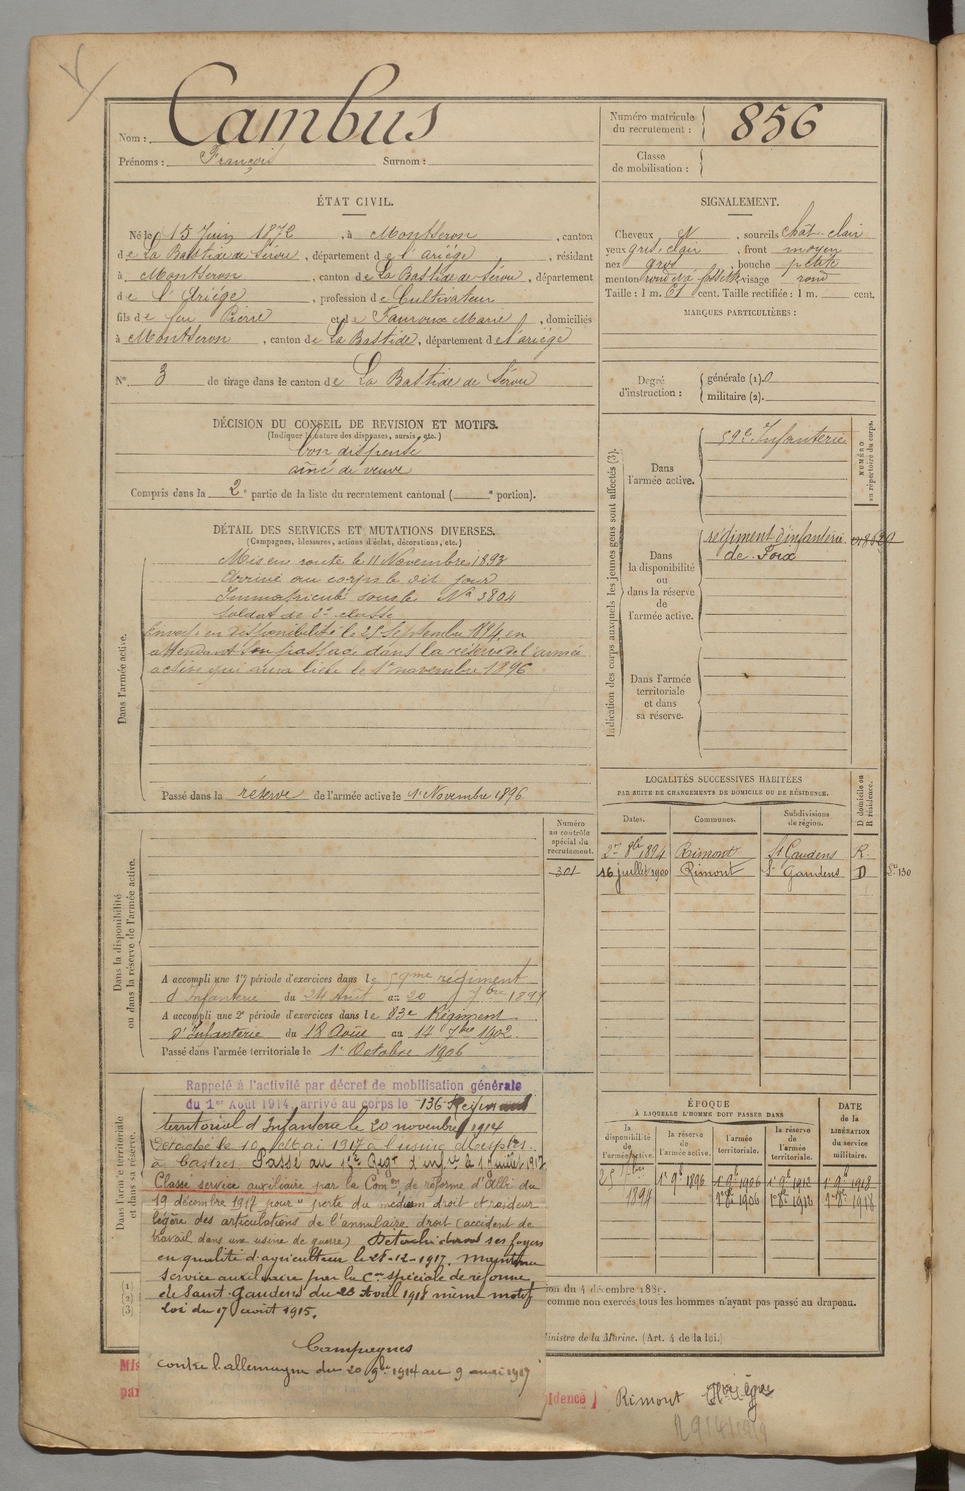 Nom : Cambus
Prénoms : François Surnom :
Numéro matricule du recrutement : 856
Classe de mobilisation :
ÉTAT CIVIL.
Né le 15 Juin 1872, à Montseron, canton
de La Bastide de Sérou, département de l'Ariège, résidant
à Montseron, canton de La Bastide de Sérou, département
de l'Ariège, profession de Cultivateur
fils de feu Pierre et de Fauroux Marie, domiciliés
à Montseron, canton de La Bastide, département de l'ariège
N° 3 de tirage dans le canton de La Bastide de Sérou
SIGNALEMENT.
Cheveux N, sourcils chât. clair
yeux gris clair, front moyen
nez gros, bouche petite
menton rond à fossette visage rond
Taille : 1 m. 61 cent. Taille rectifiée : 1 m. cent.
MARQUES PARTICULIÈRES :
Degré d'instruction : générale (1). 0
militaire (2).
DÉCISION DU CONSEIL DE REVISION ET MOTIFS.
(Indiquer la nature des dispenses, sursis, etc.)
bon dispensé
aîné de veuve
Compris dans la 2e partie de la liste du recrutement cantonal ( e portion).
DÉTAIL DES SERVICES ET MUTATIONS DIVERSES.
(Campagnes, blessures, actions d'éclat, décorations, etc.)
Dans l'armée active.
Mis en route le 11 Novembre 1893
Arrivé au corps le dit jour
Immatriculé sous le No 3804
Soldat de 2e classe
Envoyé en disponibilité le 25 Septembre 1894 en
attendant son passage dans la réserve de l'armée
active qui aura lieu le 1er novembre 1896
Passé dans la réserve de l'armée active le 1er Novembre 1896
Indication des corps auxquels les jeunes gens sont affectés (3).
NUMÉRO au répertoire du corps.
Dans l'armée active.
59e Infanterie
Dans la disponibilité ou dans la réserve de l'armée active.
régiment d'infanterie
de Foix
Dans l'armée territoriale et dans sa réserve.
LOCALITÉS SUCCESSIVES HABITÉES
PAR SUITE DE CHANGEMENTS DE DOMICILE OU DE RÉSIDENCE.
Dates. Communes. Subdivisions de région. D domicile ou R résidence.
27 8bre 1894 Rimont St Gaudens R.
16 juillet 1900 Rimont St Gaudens D
Numéro au contrôle spécial du recrutement.
301
Dans la disponibilité ou dans la réserve de l'armée active.
A accompli une 1re période d'exercices dans le 59me régiment
d'Infanterie du 24 Août au 20 7bre 1899
A accompli une 2e période d'exercices dans le 83e Régiment
d'Infanterie du 18 Août au 14 7bre 1902.
Passé dans l'armée territoriale le 1er Octobre 1906
Dans l'armée territoriale et dans sa réserve.
Rappelé à l'activité par décret de mobilisation générale
du 1er Août 1914, arrivé au corps le 136 Régiment
territorial d'Infanterie le 20 novembre 1914
Détaché le 10 Mai 1917 à l'usine
à Castres. Passé au Regt d'inf. le 1 juillet 1917
Classé service auxiliaire par la Comon de réforme d'Albi du
19 décembre 1917 pour "perte du médium droit et raideur
légère des articulations de l'annulaire droit (accident de
travail dans une usine de guerre) Détaché dans ses foyers
en qualité d'agriculteur le 28-12-1917. Maintenu
service auxiliaire par la Con spéciale de réforme
de Saint-Gaudens du 23 Avril 1918 même motif
loi du 17 août 1915.
Campagnes
contre l'allemagne du 20 9bre 1914 au 9 mai 1917
ÉPOQUE
À LAQUELLE L'HOMME DOIT PASSER DANS
la disponibilité de l'armée active. la réserve de l'armée active. l'armée territoriale. la réserve de l'armée territoriale.
DATE de la LIBÉRATION du service militaire.
25 7bre 1894 1er 9bre 1896 1er 9bre 1906 1er 9bre 1912 1er 9bre 1918
1er 8bre 1906 1er 8bre 1918
(1)
(2)
(3)
comme non exercés tous les hommes n'ayant pas passé au drapeau.
Ministre de la Marine. (Art. 4 de la loi.)
Mis
par
idence } Rimont Ariège